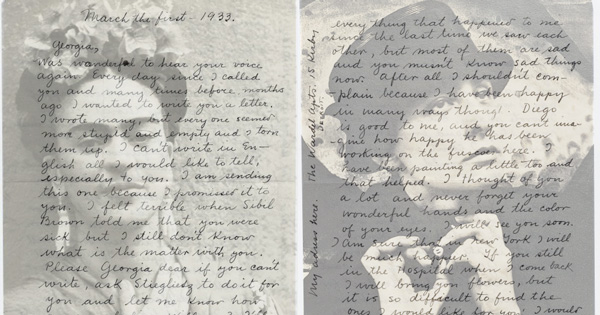 March the first - 1933.
Georgia,
Was wonderful to hear your voice
again. Every day since I called
you and many times before months
ago I wanted to write you a letter.
I wrote many, but every one seemed
more stupid and empty and I torn
them up. I can't write in En-
glish all I would like to tell,
especially to you. I am sending
this one because I promised it to
you. I felt terrible when Sibil
Brown told me that you were
sick but I still don't know
what is the matter with you.
Please Georgia dear if you can't
write, ask Stieglitz to do it for
you and let me know how
every thing that happened to me
since the last time we saw each
other, but most of them are sad
and you mustn't know sad things
now. After all I shouldn't com-
plain because I have been happy
in many ways though. Diego
is good to me, and you can't ima-
gine how happy he has been
working on the frescoes here. I
have been painting a little too and
that helped. I thought of you
a lot and never forget your
wonderful hands and the color
of your eyes. I will see you soon.
I am sure that in New York I will
be much happier. If you still
in the Hospital when I come back
I will bring you flowers, but
it is so difficult to find the
ones I would like for you. I would
My adress here. The Wardell Apts. 15 Kirby